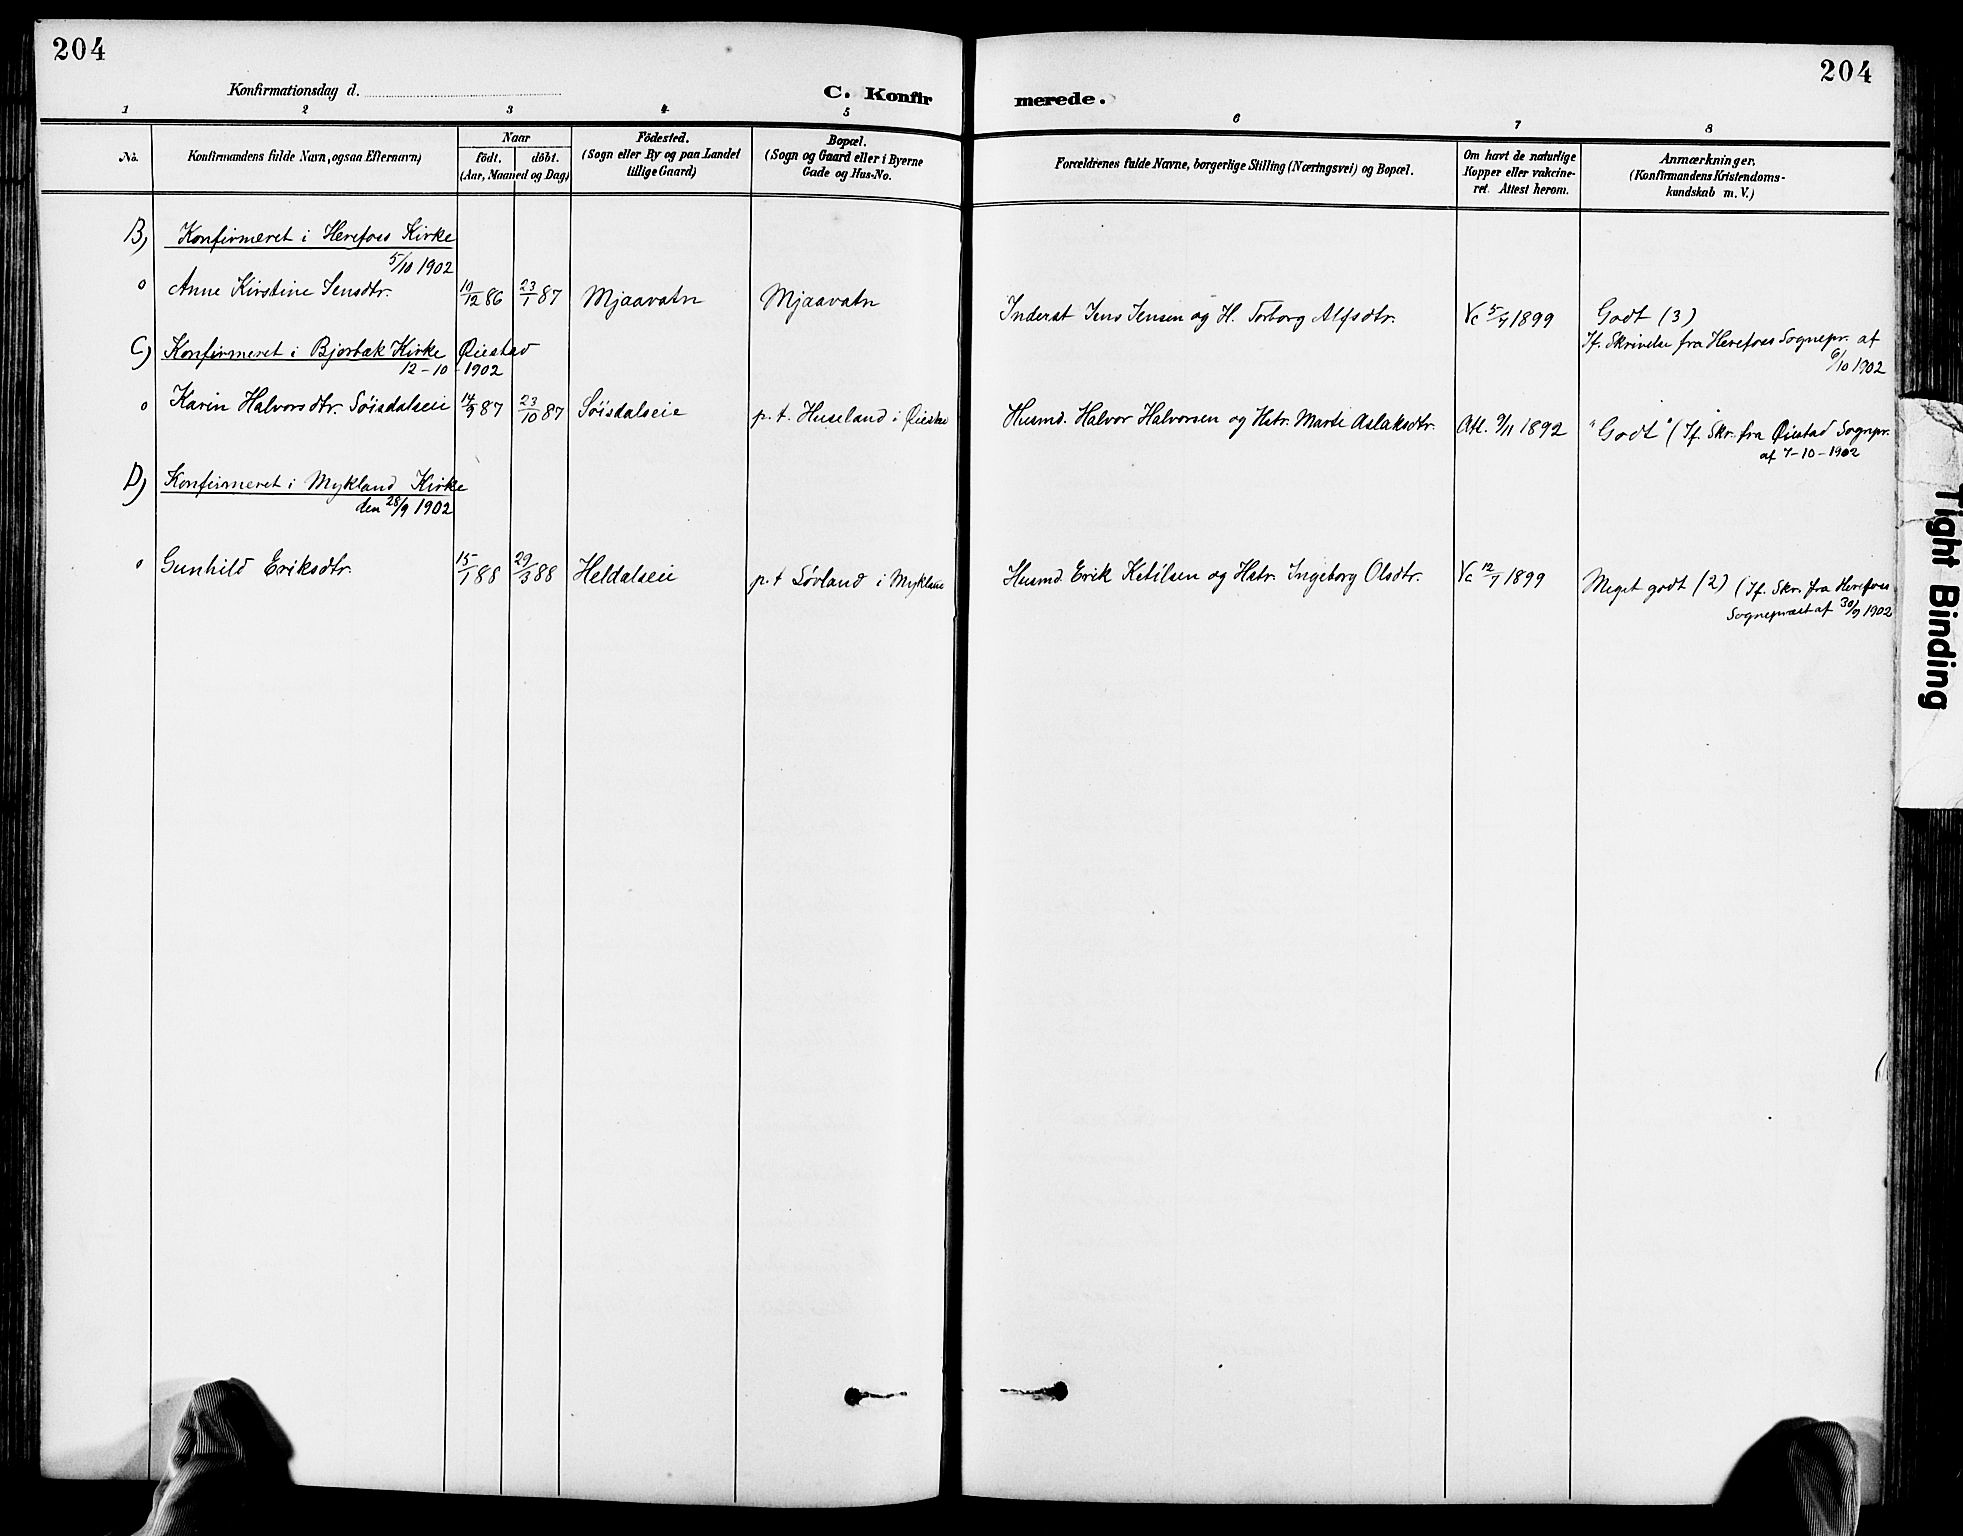 204
204
Konfirmationsdag d.
C. Konfirmerede.
1 2 3 4 5 6 7 8
No.
Konfirmandens fulde Navn, ogsaa Efternavn)
Naar
födt. döbt.
(Aar, Maaned og Dag)
Födested.
(Sogn eller By og paa Landet
tillige Gaard)
Bopæl.
(Sogn og Gaard eller i Byerne
Gade og Hus-No.
Forældrenes fulde Navne, borgerlige Stilling (Næringsvei) og Bopæl.
Om havt de naturlige
Kopper eller vakcine-
ret. Attest herom.
Anmærkninger.
(Konfirmandens Kristendoms-
kundskab m. V.)
B) Konfirmeret i Herefoss Kirke
5/10 1902
o Anne Kirstine Jensdtr. 10/12 86 23/1 87 Mjaavatn Mjaavatn Inderst Jens Jensen og H. Torborg Alfsdtr. Vc 5/7 1899 Godt (3)
Jf. Skrivelse fra Herefoss Sognepr. af
6/10 1902
C) Konfirmeret i Bjorbæk Kirke Øiestad
12-10-1902
o Karin Halvorsdtr. Søisdalseie 14/9 87 23/10 87 Søisdalseie p. t. Huseland i Øiestad Husmd. Halvor Halvorsen og Hstr. Marte Aslaksdtr. Att. 9/11 1892 "Godt" (Jf. Skr. fra Øiestad Sognepr.
af 7-10-1902
D) Konfirmeret i Mykland Kirke
den 28/9 1902
o Gunhild Eriksdtr. 15/1 88 29/3 88 Heldalseie p. t Løvland i Mykland Husmd. Erik Ketilsen og Hstr. Ingeborg Olsdtr. Vc 12/7 1899 Meget godt (2) (Jf. Skr. fra Herefoss
Sogneprest af 30/9 1902
Tight Binding